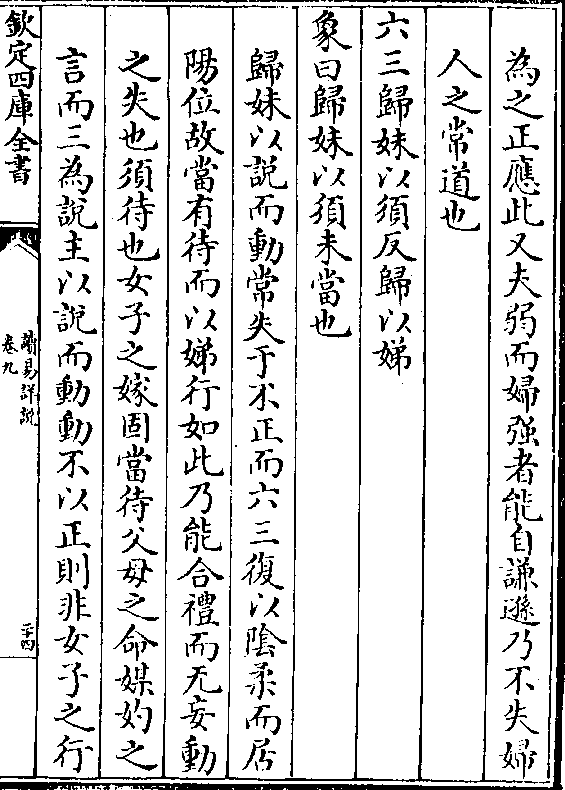 為之正應此又夫弱而婦强者能自謙遜乃不失婦
人之常道也
六三歸妹以須反歸以娣
象曰歸妹以須未當也
歸妹以説而動常失于不正而六三復以陰柔而居
陽位故當有待而以娣行如此乃能合禮而无妄動
之失也須待也女子之嫁固當待父母之命媒妁之
言而三為説主以説而動動不以正則非女子之行
欽定四庫全書
讀易詳說
卷九
二十四